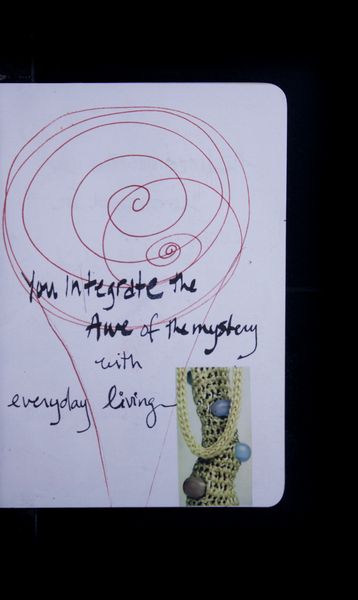 You Integrate the
Awe of the mystery
with
everyday living